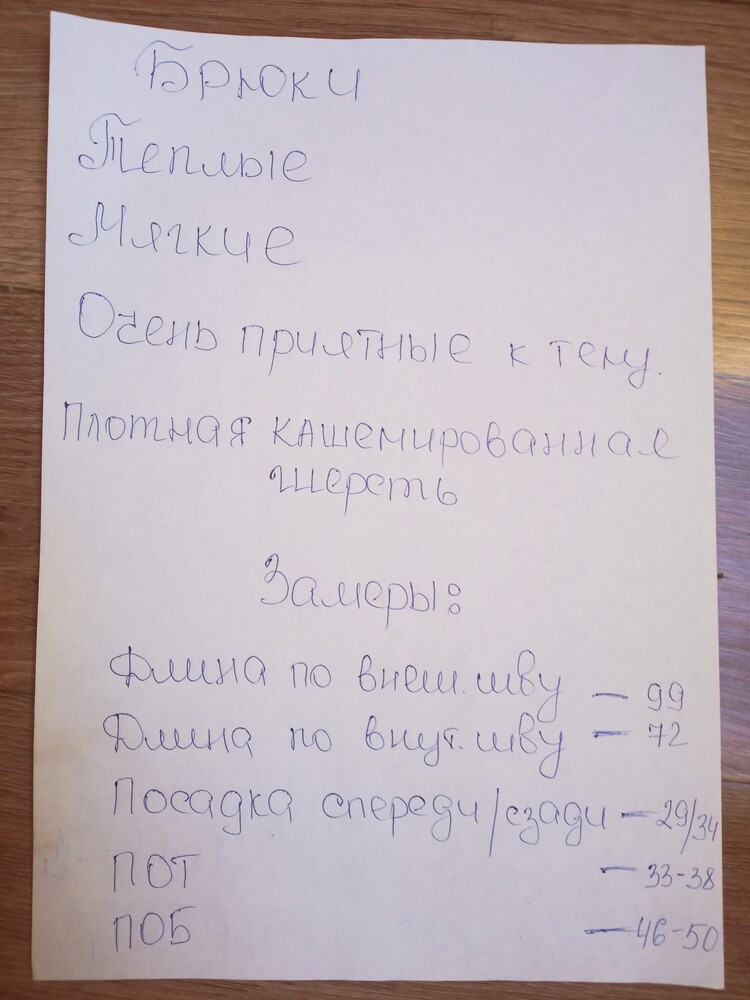 Брюки
Теплые
Мягкие
Очень приятные к телу.
Плотная кашемированная
шерсть
Замеры:
Длина по внеш. шву - 99
Длина по внут. шву - 72
Посадка спереди/сзади - 29/34
ПОТ - 33-38
ПОБ - 46-50